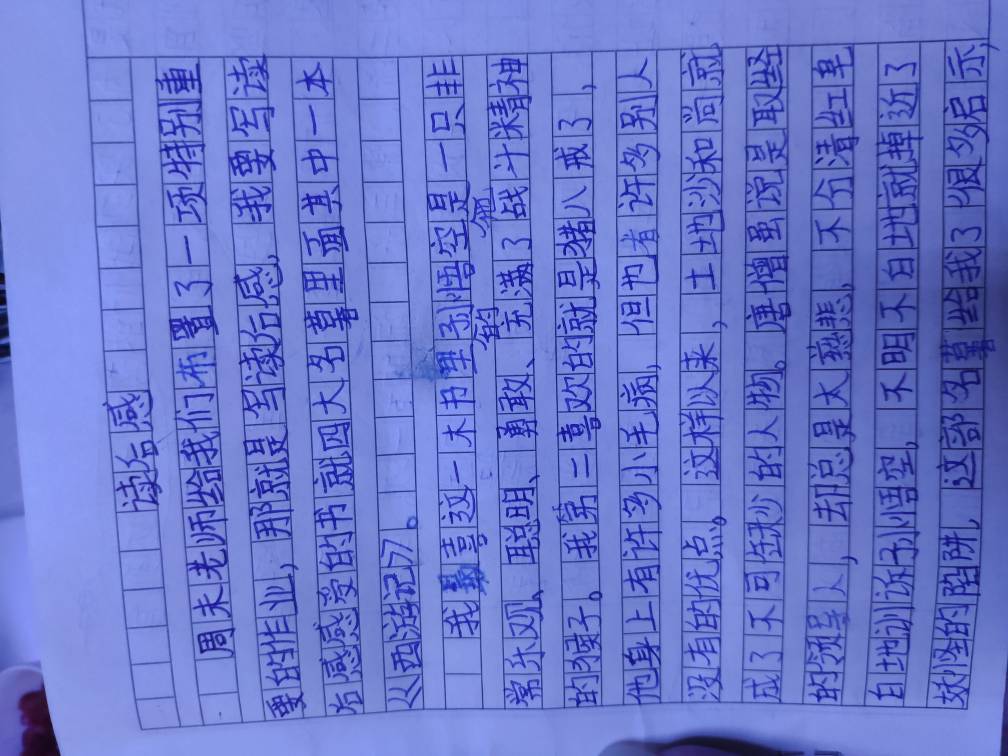 读后感
周末老师给我们布置了一项特别重
要的作业，那就是写读后感，我要写读
后感感受的书就四大名著里面其中一本
《西游记》。
我最喜这一本书里孙悟空是一只非
常乐观、聪明、勇敢、充满了战斗精神
的猴子。我第二喜欢的就是猪八戒了，
他身上有许多小毛病，但也有许多别人
没有的优点。这样以来，土地沙和尚就
成了不可缺少的人物。唐僧虽说是取经
的领导人，却总是大慈悲，不分清红皂
白地训诉孙悟空，不明不白地就掉近了
妖怪的陷阱，这部名著给我了很多启示，